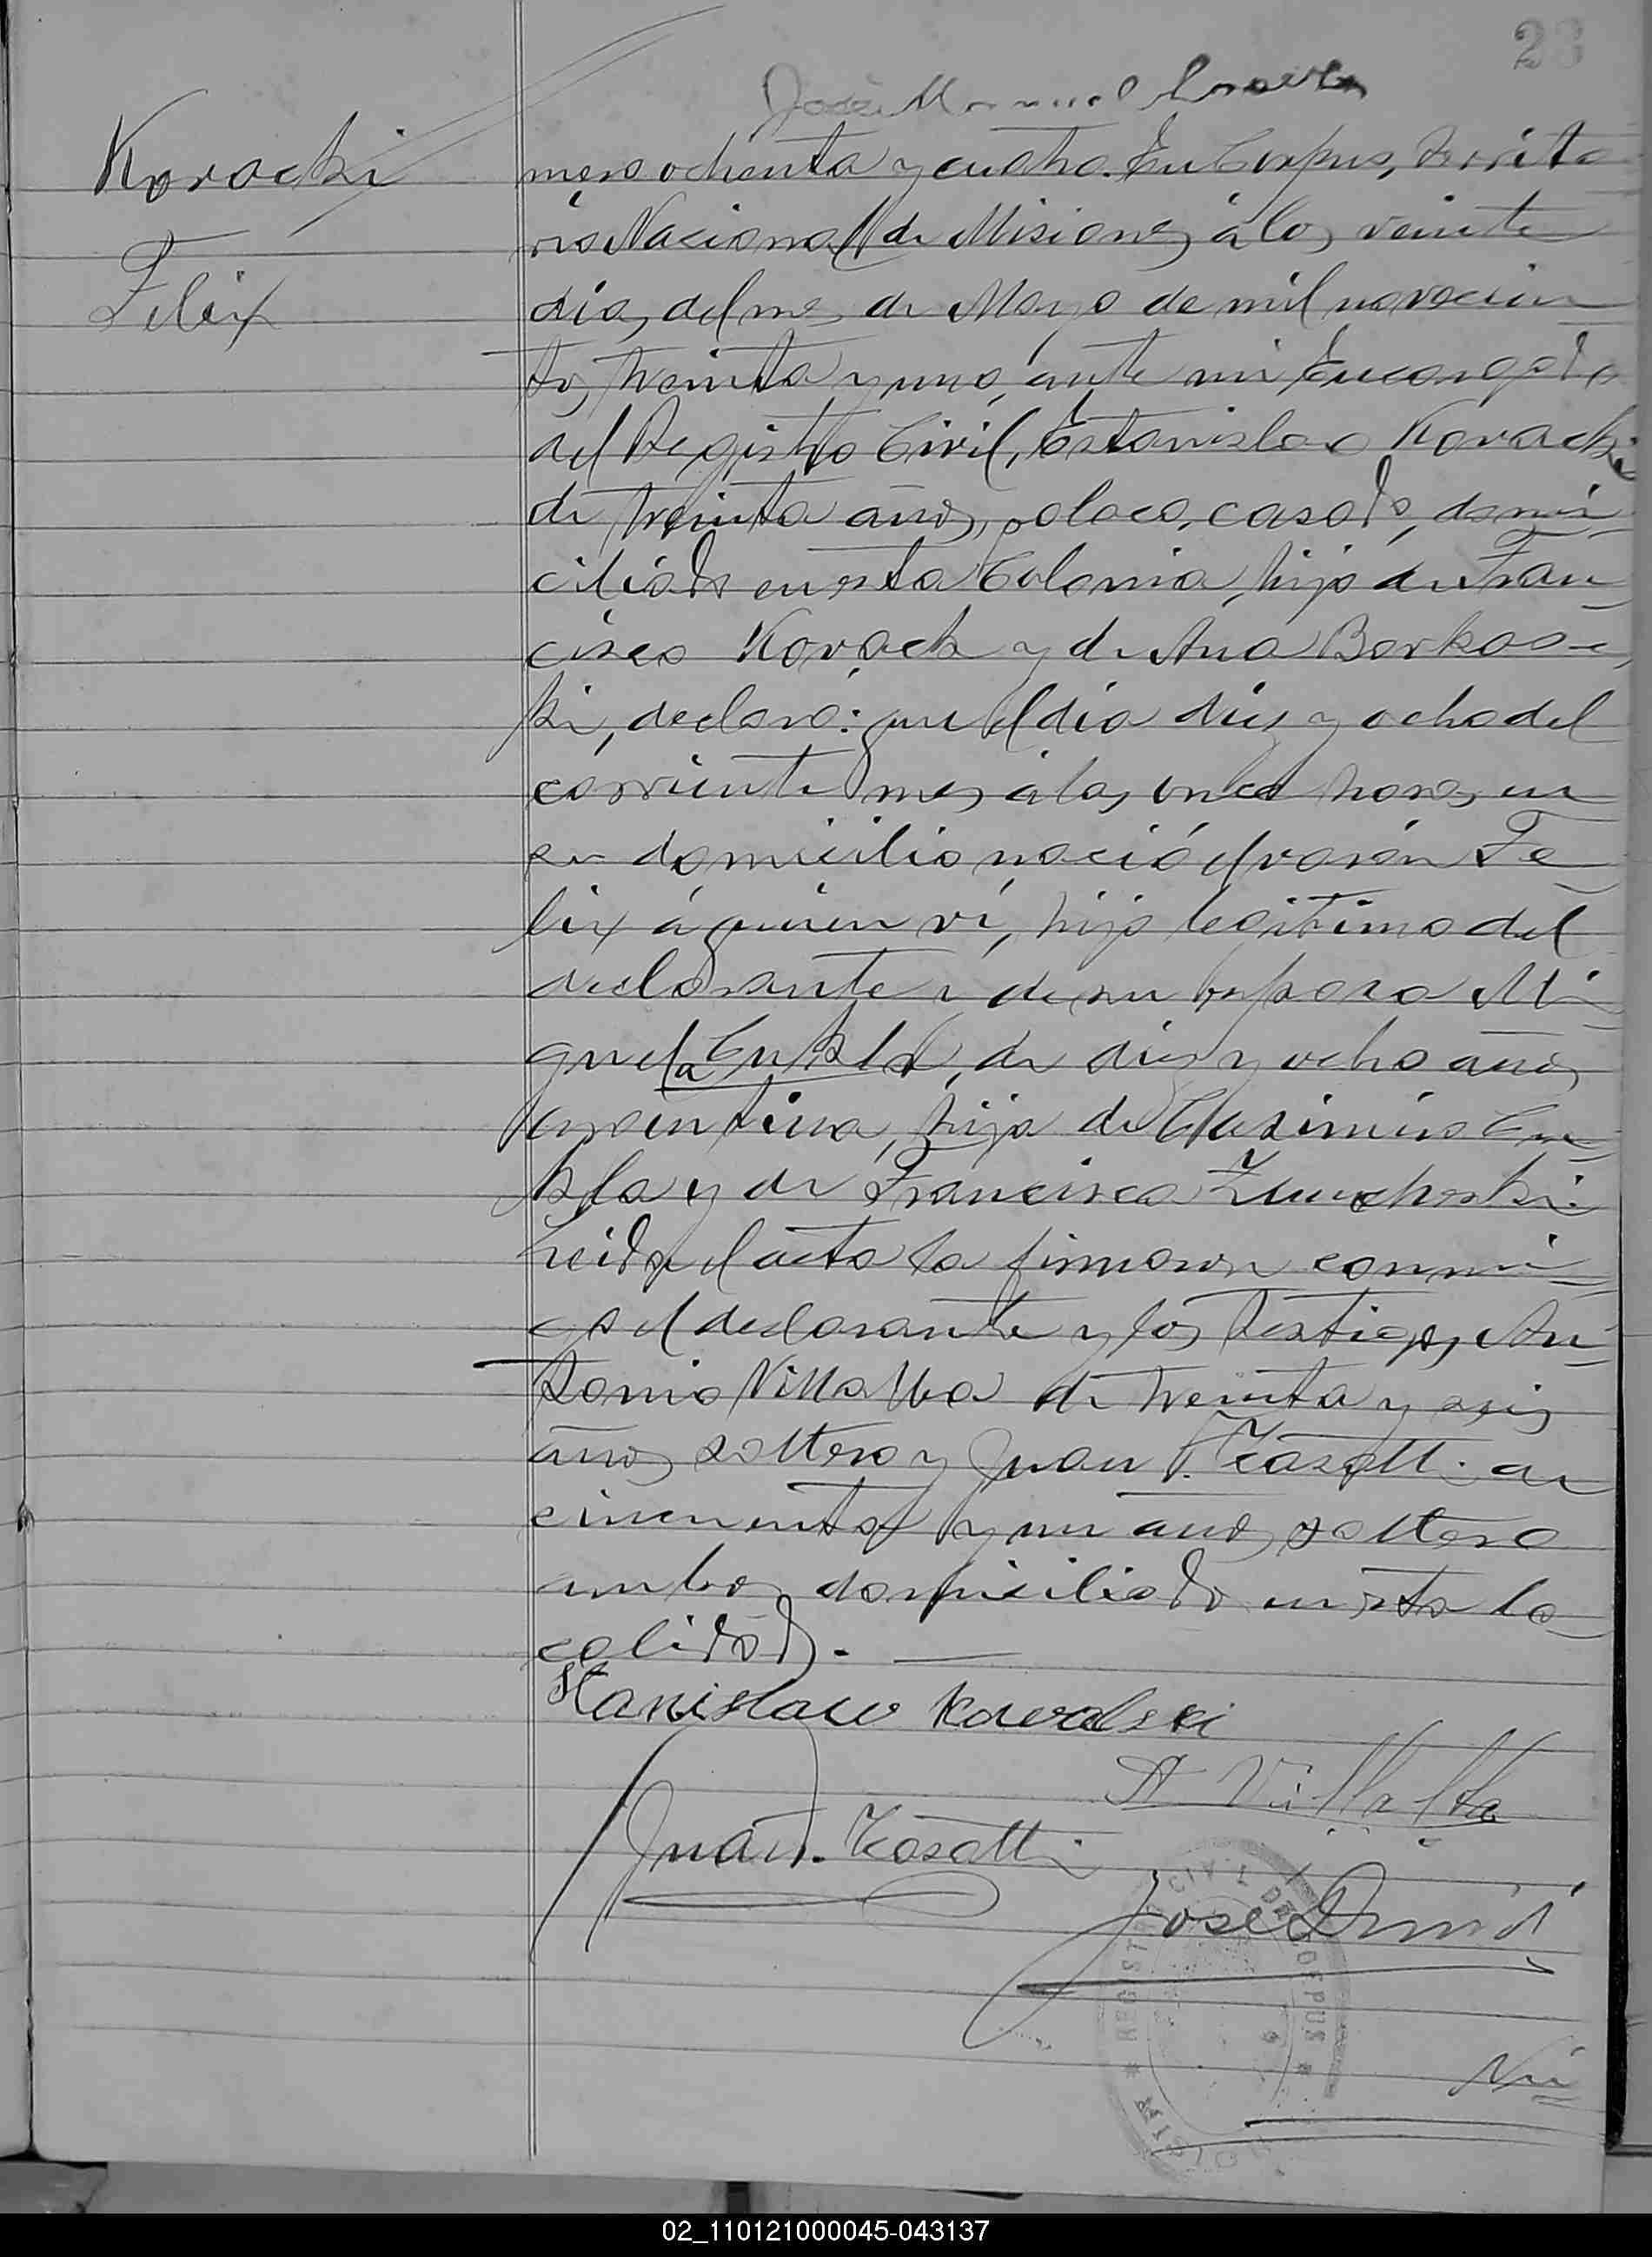 23
José Manuel
Koracki
Felix
mero ochenta y cuatro. En Corpus, Territo
rio Nacional de Misiones, á los veinte
días, del mes de Mayo de mil novecien
tos, treinta y uno, ante mi Encargado
del Registro Civil, Estanislao Koracki
de treinta años, polaco, casado, domi
ciliado en esta Colonia, hijo de Fran
cisco Korack y de Ana Borkos
ki, declaró: que el día diez y ocho del
corriente mes, á las once horas, en
su domicilio nació el varón Fe
lix á quien ví, hijo legítimo del
declarante y de su esposa Mi
guela Cukla, de diez y ocho años
argentina, hija de Casimiro Cu
kla y de Francisca
Leida el acta la firmaron conmi
go el declarante y los testigos, An
tonio Villalba de treinta y seis
años soltero y Juan F. Kasatti de
cincuenta y un años soltero
ambos domiciliado en esta lo
calidad. —
Stanislaw Kowalski
A Villalba
Juan F. Kasatti
José
REGISTRO CIVIL DE CORPUS * MISIONES *
Nú
02_110121000045-043137